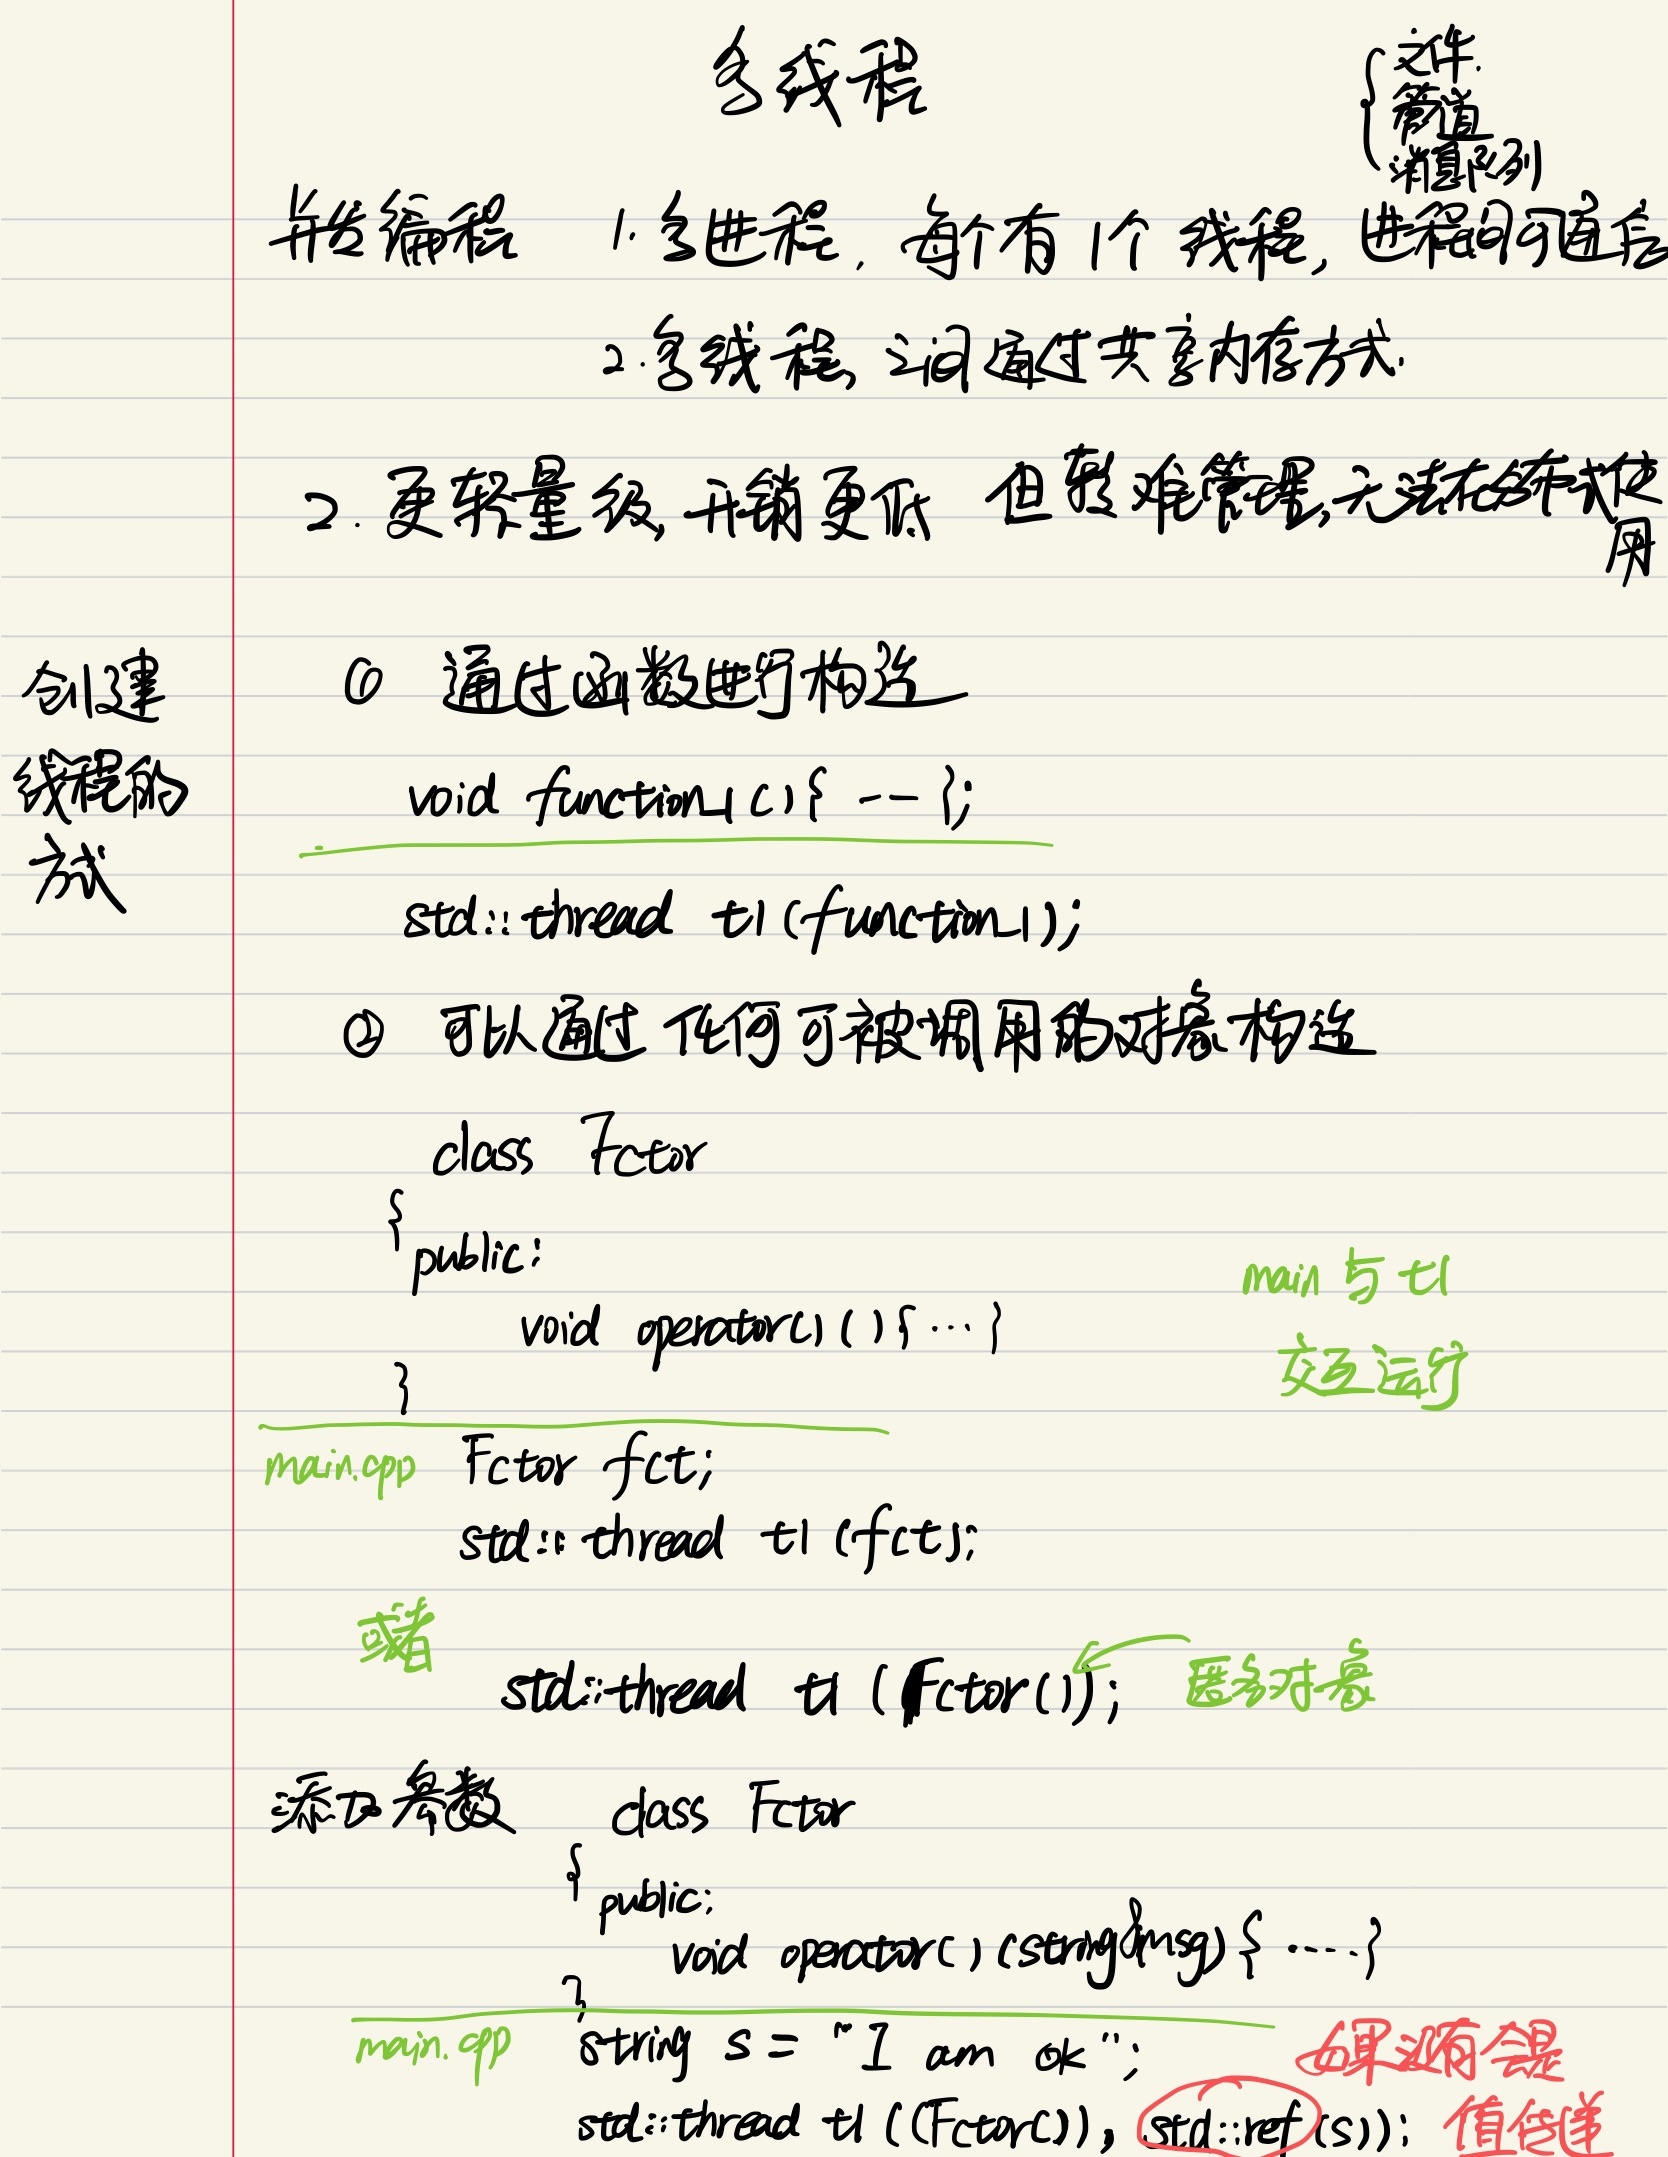 多线程
文件.
管道
消息队列
并发编程 1. 多进程, 每个有1个线程, 进程间可通信
2. 多线程, 之间通过共享内存方式.
2. 更轻量级, 开销更低 但较难管理, 无法在分布式使用
创建
线程的
方式
① 通过函数进行构造
void function_1(){ --- };
std::thread t1(function_1);
② 可以通过任何可被调用的对象构造
class Fctor
{
public:
void operator()(){ ... }
}
main 与 t1
交互运行
main.cpp Fctor fct;
std::thread t1(fct);
或者
std::thread t1((Fctor()); 匿名对象
添加参数 class Fctor
{
public:
void operator()(string& msg){ ..... }
}
main.cpp string s = "I am ok";
std::thread t1((Fctor()), std::ref(s));
如果没有会是
值传递